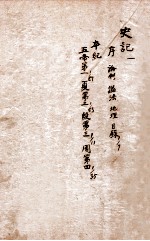 史記一
序 論例 諡法 地理 目錄
本紀
五帝第一 夏第二 殷第三 周第四